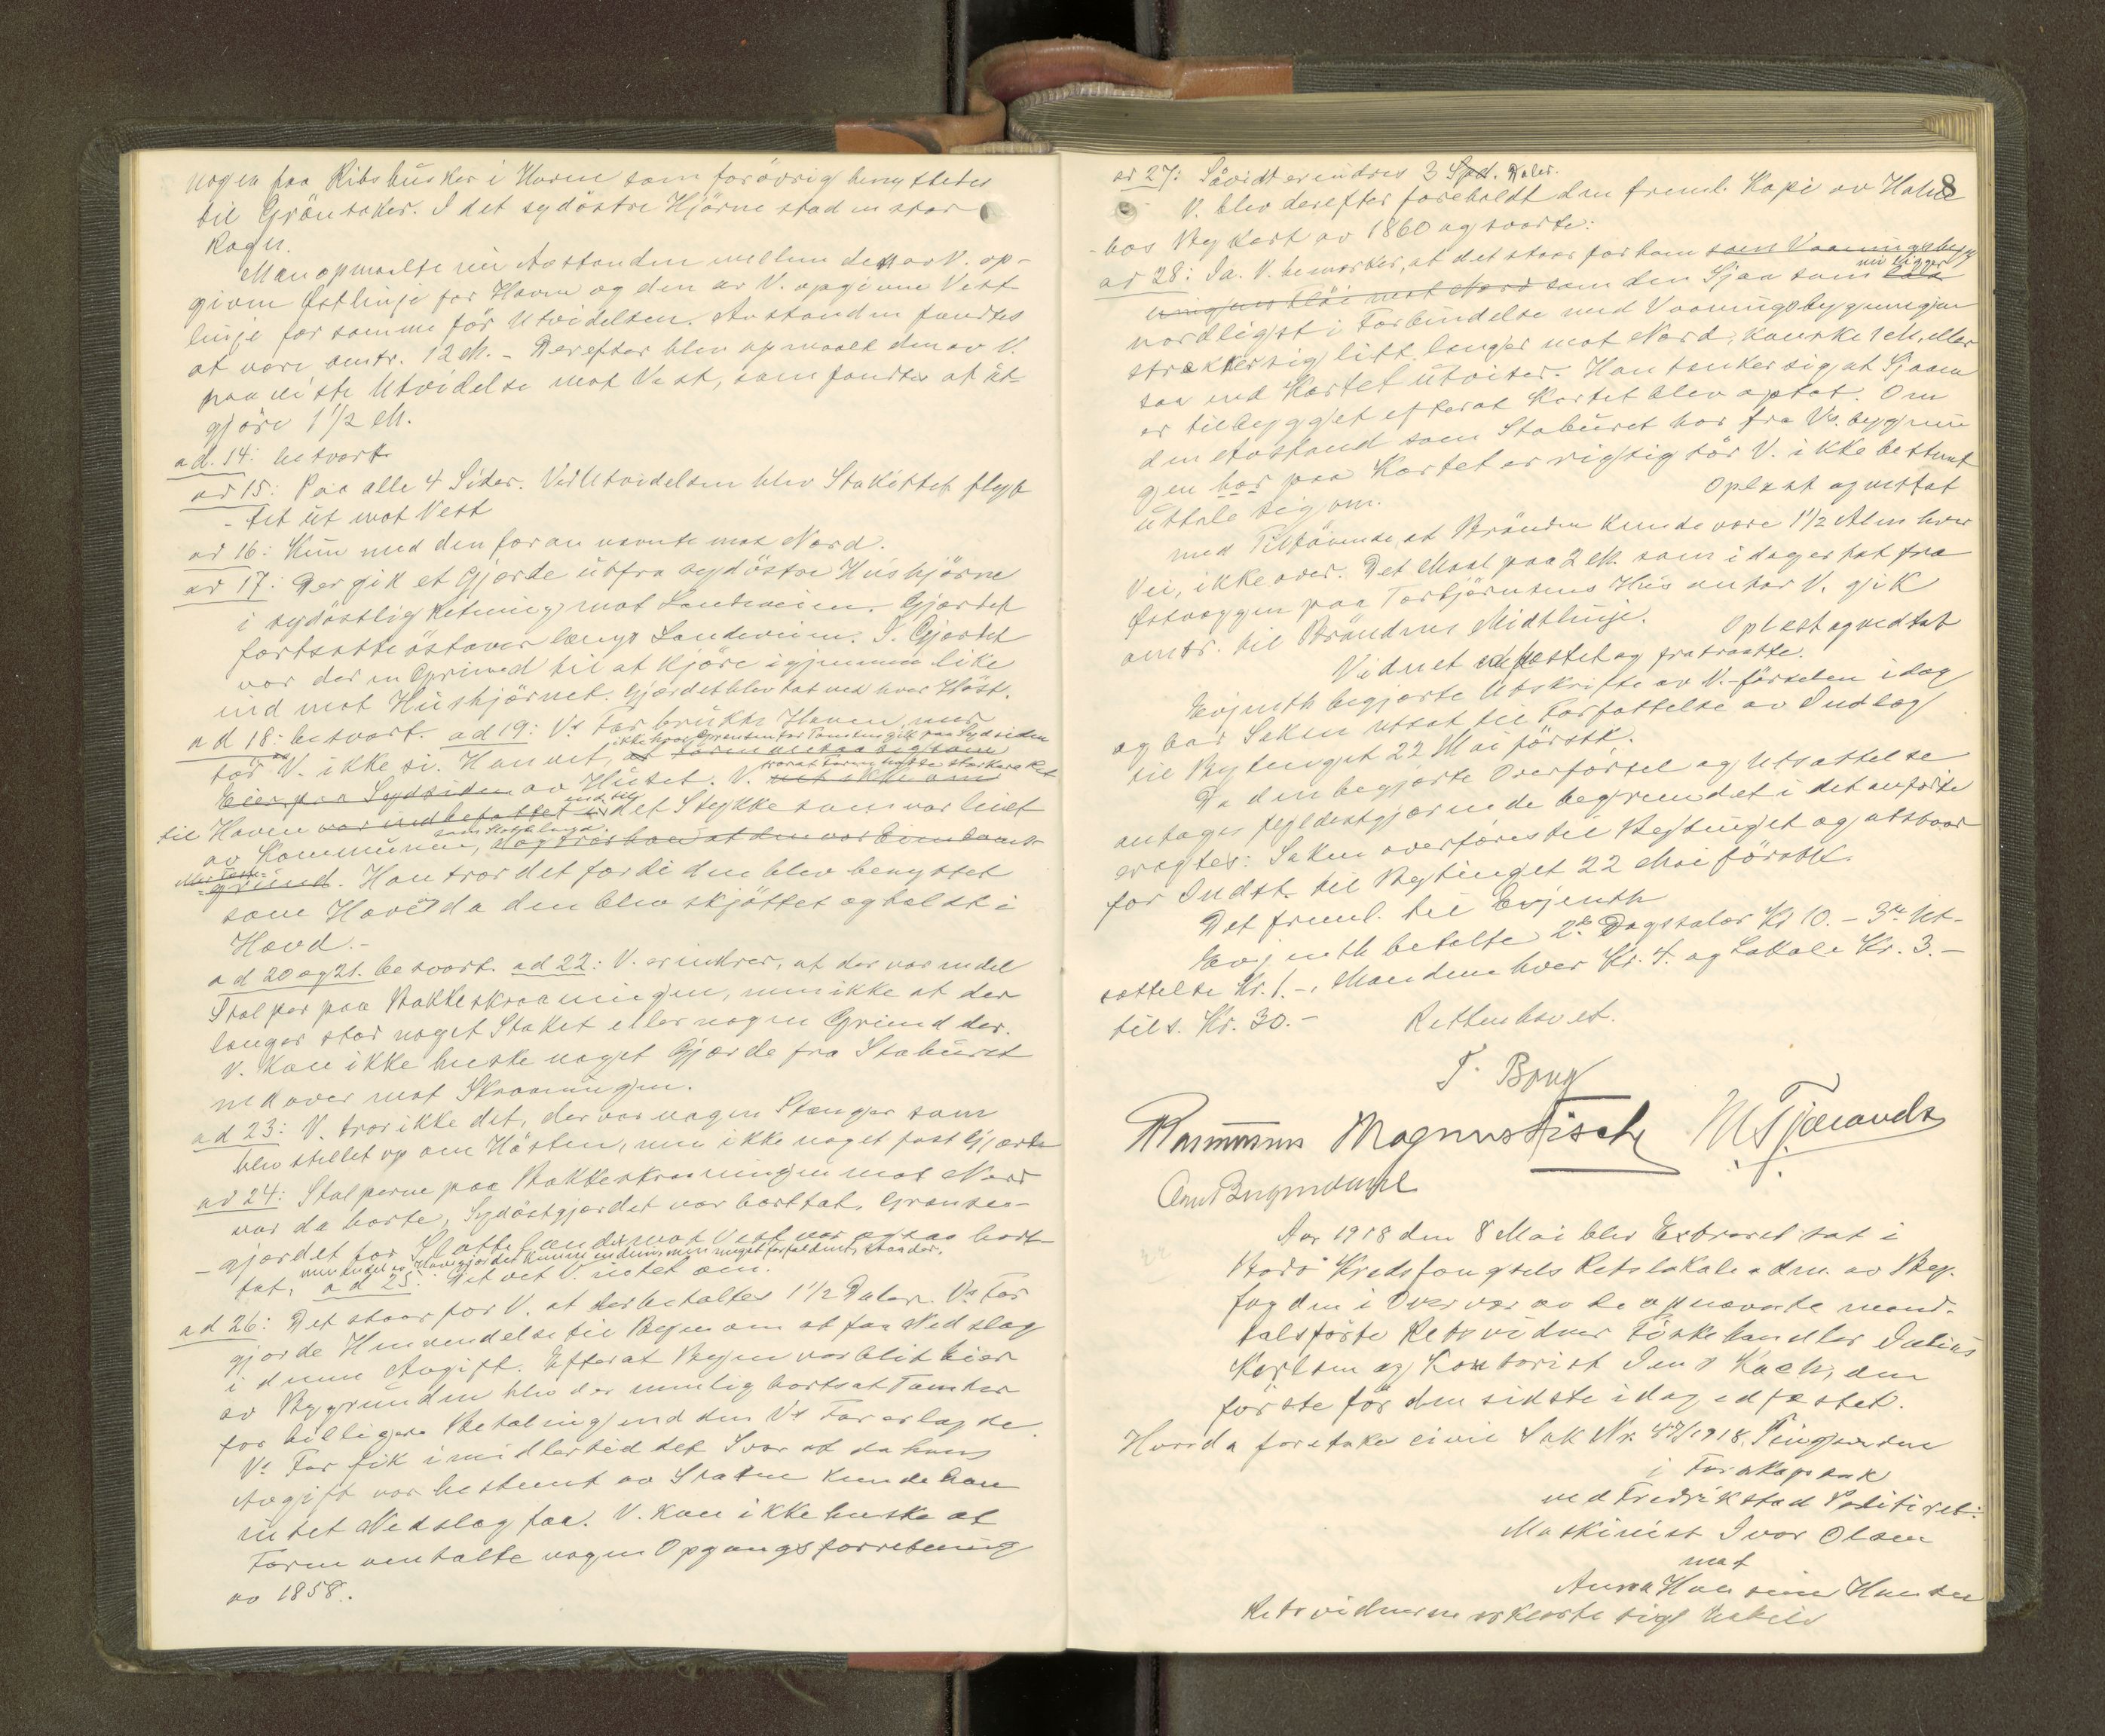 nogen faa Ribsbusker i Haven som forøvrig benyttedes
til Grønsaker. I det sydøstre Hjørne stod en stor
Rogn.
Man opmaalte nu Avstanden mellem den av V. op-
givne Østlinje for Haven og den av V. opgivne Vest
linje for samme før Utvidelsen. Avstanden fandtes
at være omtr. 12 M. - Derefter blev opmaalt den av V.
paaviste Utvidelse mot Vest, som fandtes at ut-
gjøre 1 1/2 M.
ad. 14: besvart.
ad 15: Paa alle 4 Sider. Ved Utvidelsen blev Stakittet flyt-
tet ut mot Vest
ad 16: Kun med den foran nævnte mot Nord.
ad 17: Der gik et Gjærde ut fra sydøstre Hushjørne
i sydøstlig Retning mot Landeveien. Gjærdet
fortsatte østover langs Landeveien. I Gjærdet
var der en Grind til at kjøre igjennem like
ind mot Hushjørnet. Gjærdet blev tat ned hver Høst.
ad 18: besvart. ad 19: Vs Far brukte Haven, mer
ikke hvor Grænsen for Tomten gik paa Sydsiden
tør V. ikke si. Han vet,
Eier paa Sydsiden av Huset. V.
til Haven var indbefattet i det Stykke som var leiet
av Kommunen, og tror han at den var
grund. Han tror det fordi den blev benyttet
som Have da den blev skjøttet og holdt i
Hævd.-
ad 20 og 21. besvart. ad 22: V. erindrer, at der var en del
Stolper paa Bakkeskraaningen, men ikke at der
længer stod noget Staket eller nogen Grind der.
V. kan ikke huske noget Gjærde fra Staburet
nedover mot Skraaningen.
ad 23: V. tror ikke det, der var nogen Stænger som
blev stillet op om Høsten, men ikke noget fast Gjærde
ad 24: Stolperne paa Bakkeskraaningen mot Nord
var da borte, Sydøstgjærdet var borttat. Grænse-
gjærdet for Slottelandet mot Vest var ogsaa bort-
men endel av Havegjærdet kunne endnu, men meget forfaldent, staa der.
tat, ad 25: Det vet V. intet om.
ad 26: Det staar for V. at der betaltes 1 1/2 Daler. Vs Far
gjorde Henvendelse til Byen om at faa Nedslag
i denne Avgift. Efterat Byen var blit Eier
av Bygrunden blev der nemlig bortsat Tomter
for billigere Betaling end den Vs Far erlagde.
Vs Far fik imidlertid det Svar at da hans
Avgift var bestemt av Staten kunde han
intet Nedslag faa. V. kan ikke huske at
Faren omtalte nogen Opgangsforretning
av 1858.
8
ad 27: Såvidt erindres 3 Spd. Daler.
V. blev derefter foreholdt den freml. Kopi av
Bykart av 1860 og svarte:
ad 28: Ja. V. bemærker, at det staar for ham som Vaaningsbyg
ningens Fløi mot Nord som den Sjaa som nu ligger
nordligst i Forbindelse med Vaaningsbygningen
strækker sig litt længer mot Nord, kanske 1 M, eller
saa end Kartet utviser. Han tænker sig, at Sjaaen
er tilbygget efterat Kartet blev optat. Om
den Avstand som Staburet har fra Vs. bygnin
gen har paa Kartet er rigtig tør V. ikke bestemt
uttale sig om.
Oplæst og vedtat
med Tilføiende at Brønden kunde være 1 1/2 Alen hver
Vei, ikke over. Det Maal paa 2 M. som i dag er tat fra
Østvæggen paa Torbjørnsens Hus antar V. gik
omtr. til Brøndens Midtlinje.
Oplæst og vedtat
Vidnet edfæstet og fratraadte.
Evjenth begjærte Utskrifte av V.-førselen idag
og bad Saken utsat til Forfattelse av Indlæg
til Bytinget 22 Mai førstk.
Da den begjærte Overførsel og Utsættelse
antages fyldestgjørende begrundet i det anførte
eragtes: Saken overføres til Bytinget og utsttaar
for Indst. til Bytinget 22 Mai førstk.
Det freml. til Evjenth
Evjenth betalte 2de Dagstaler Kr 10.- 3die Ut-
sættelse Kr. 1.-, Mændene hver Kr. 4. og Lokale Kr. 3.-
tils. Kr. 30.-
Retten hævet.
Magnus Fisch
Aar 1918 den 8 Mai blev Extraret sat i
Bodø Kredsfængsels Retslokale adm. av By-
fogden i Overvær av de opnævnte mand-
talsførte Retsvidner Fiskehandler Julius
Karlsen og Kontorist Jens Koch, den
første før den sidste idag edfæstet.
Hvorda foretokes civil Sak Nr. 47/1918. Tingsvidne
i Farskapssak
ved Fredrikstad Politiret:
Maskinist Ivar Olsen
mot
Anna Hansine Hansen
Retsvidnerne erklærte sig habile